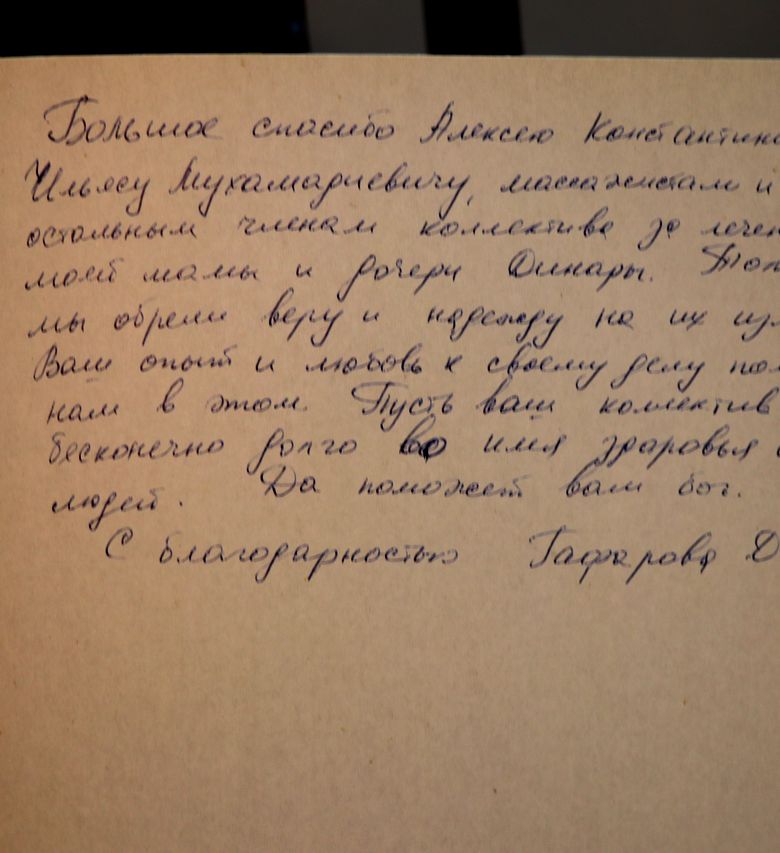 Большое спасибо Алексею Константино
Ильясу Мухамадиевичу, массажистам и
остальным членам коллектива за лечен
моей мамы и дочери Динары.
мы обрели веру и надежду на их изл
Ваш опыт и любовь к своему делу пом
нам в этом. Пусть ваш коллектив
бесконечно долго во имя здоровья
людей. Да поможет вам бог.
С благодарностью Гафарова Д